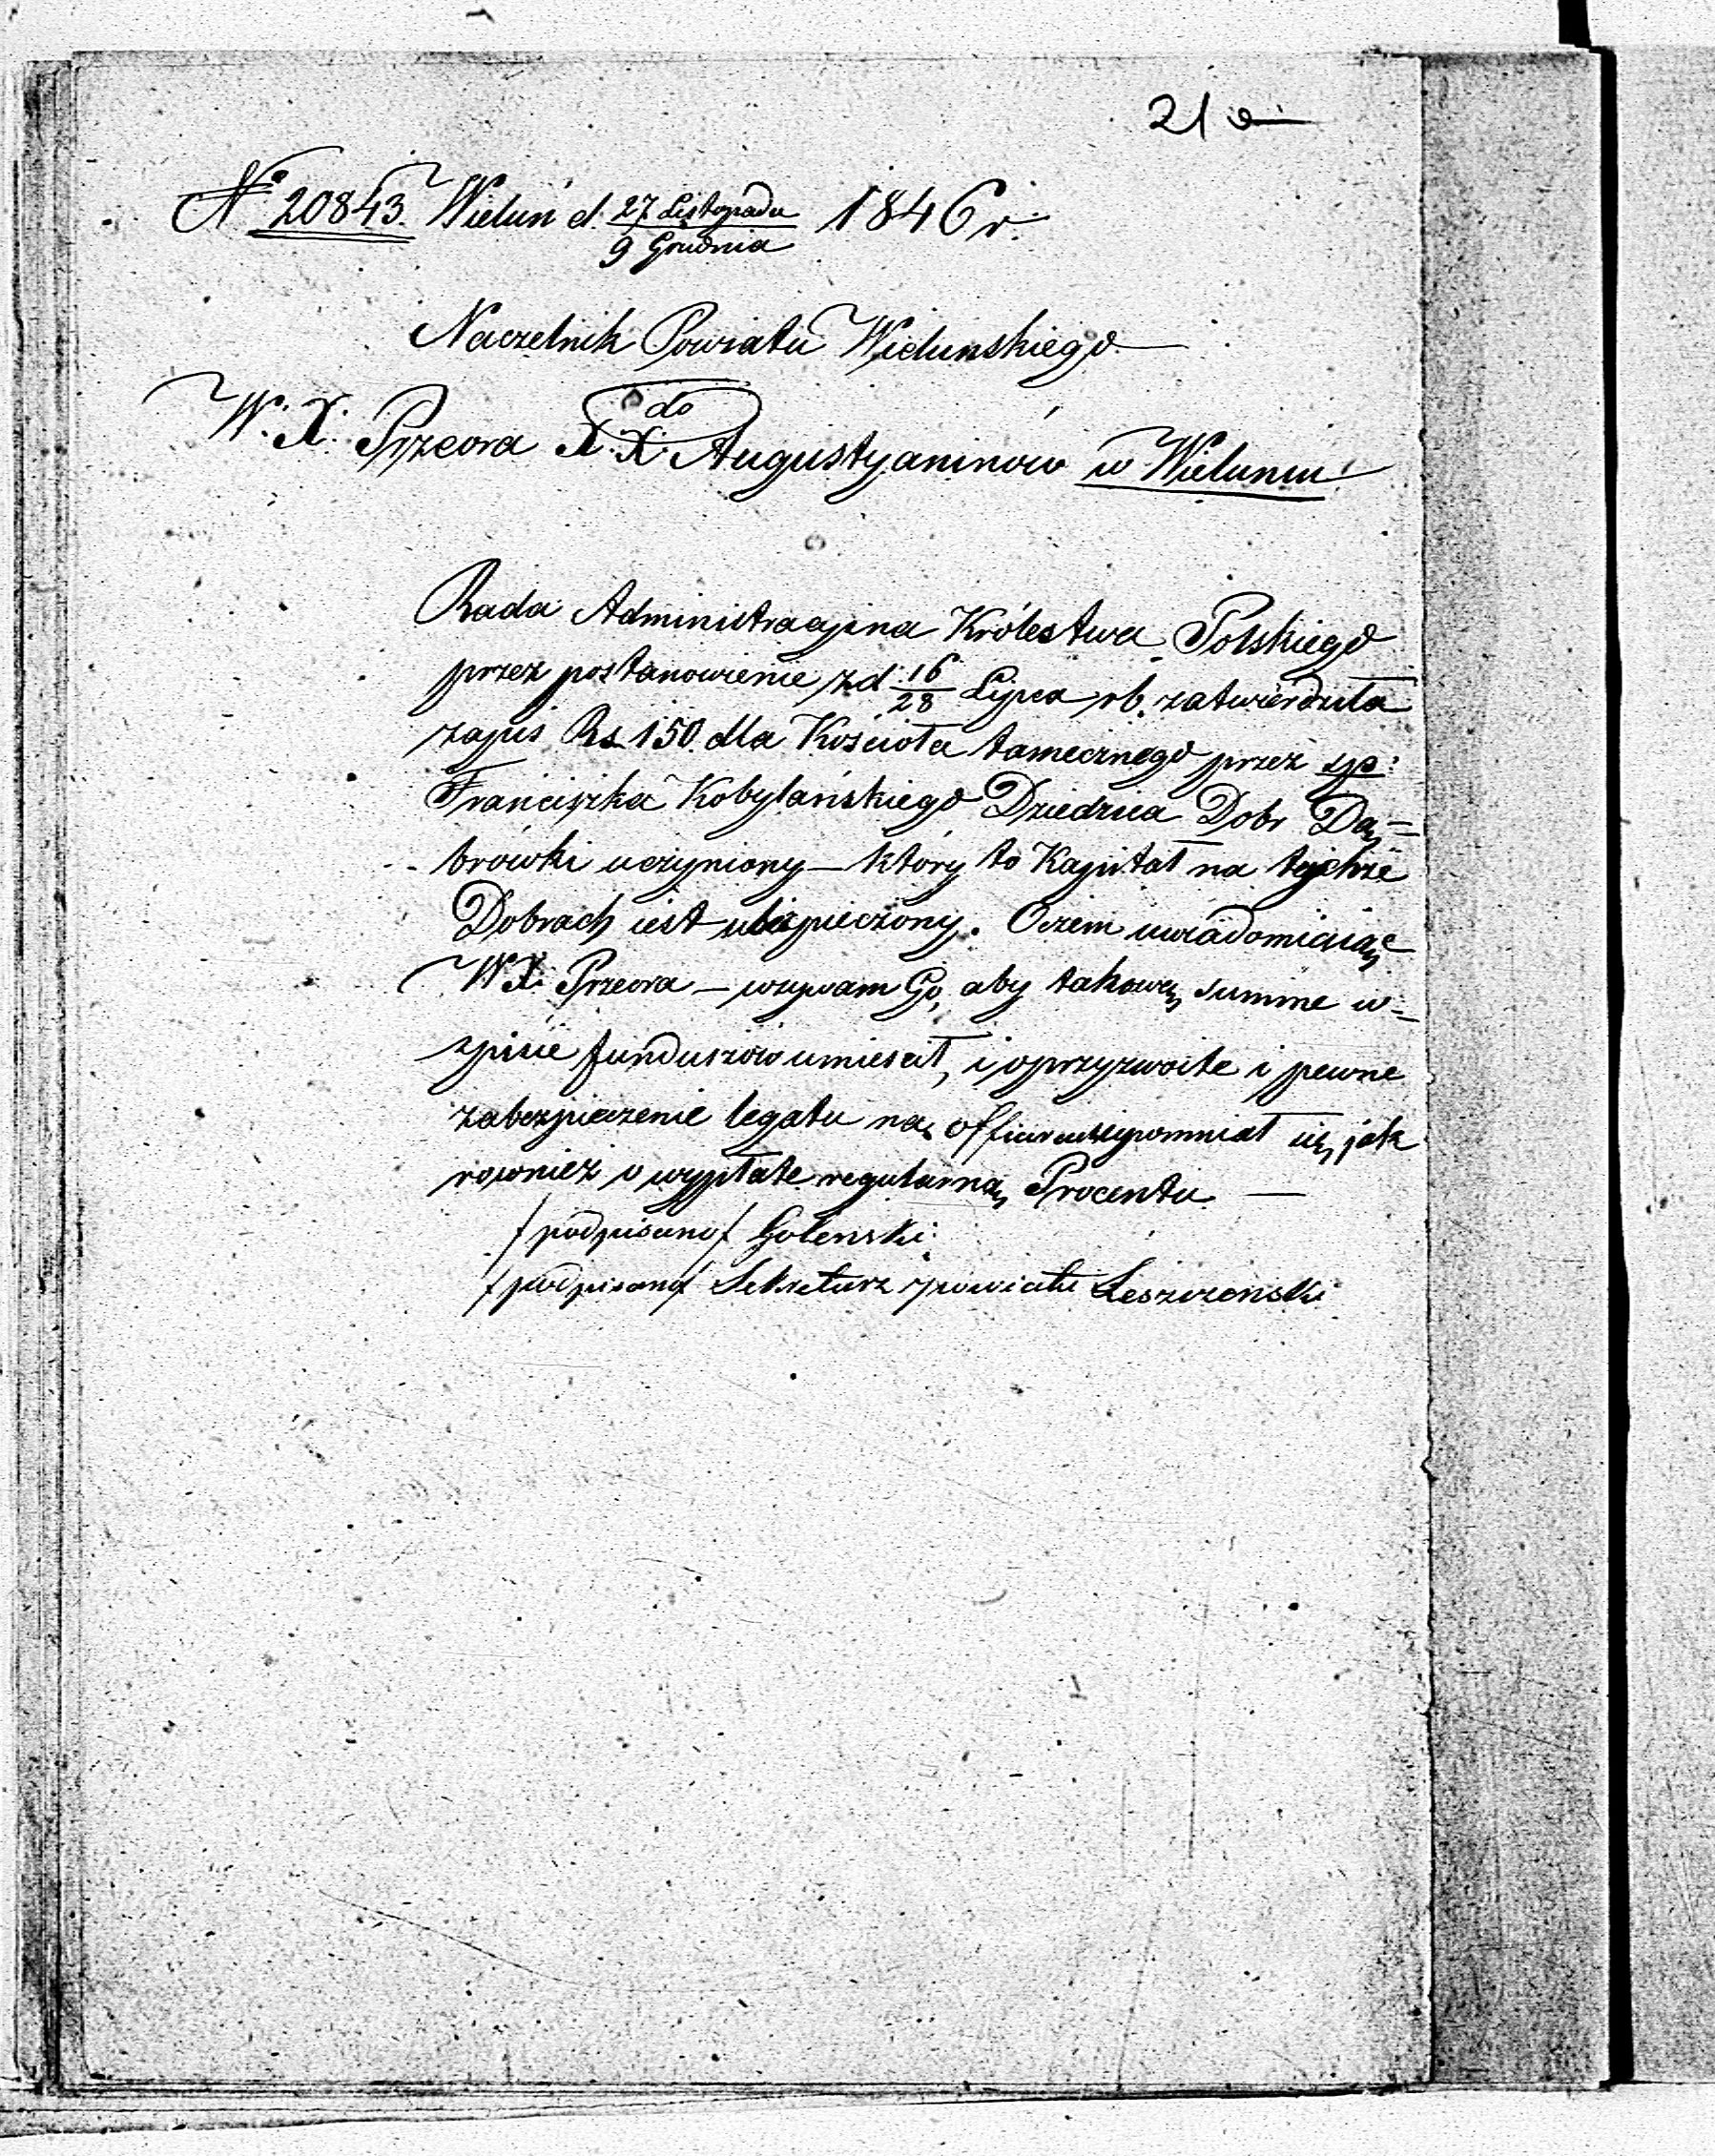 21
№ 20843. Wieluń d. 27 Listopada / 9 Grudnia 1846 r.
Naczelnik Powiatu Wielunskiego
do
W. X. Przeora X. X. Augustyaninów w Wieluniu
Rada Administracyjna Królestwa Polskiego
przez postanowienie z d. 16/28 Lipca rb. zatwierdziła
zapis Rs. 150. dla Kościoła tamecznego przez sp:
Franciszka Kobylańskiego Dziedzica Dobr Dą=
brówki uczyniony — który to Kapitał na tychże
Dobrach iest ubezpieczony. Oczem uwiadomiaiąc
W X. Przeora — wzywam Go, aby takową summe w=
spisie funduszów umieścił, i oprzyzwoite i pewne
zabezpieczenie legatu na upomniał się jak
rownież o wypłate regularną Procentu —
/podpisano/ Golenski.
/podpisano/ Sekretarz powiatu Leszczenski